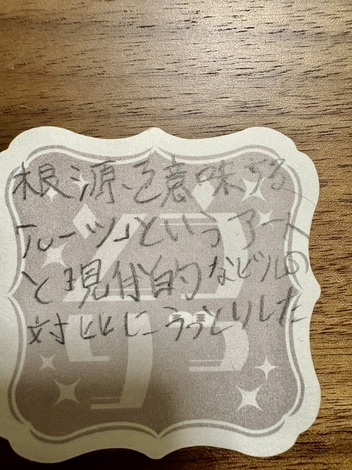 根源を意味する
「ルーツ」というアート
と現代的なビルの
対比にうっとりした